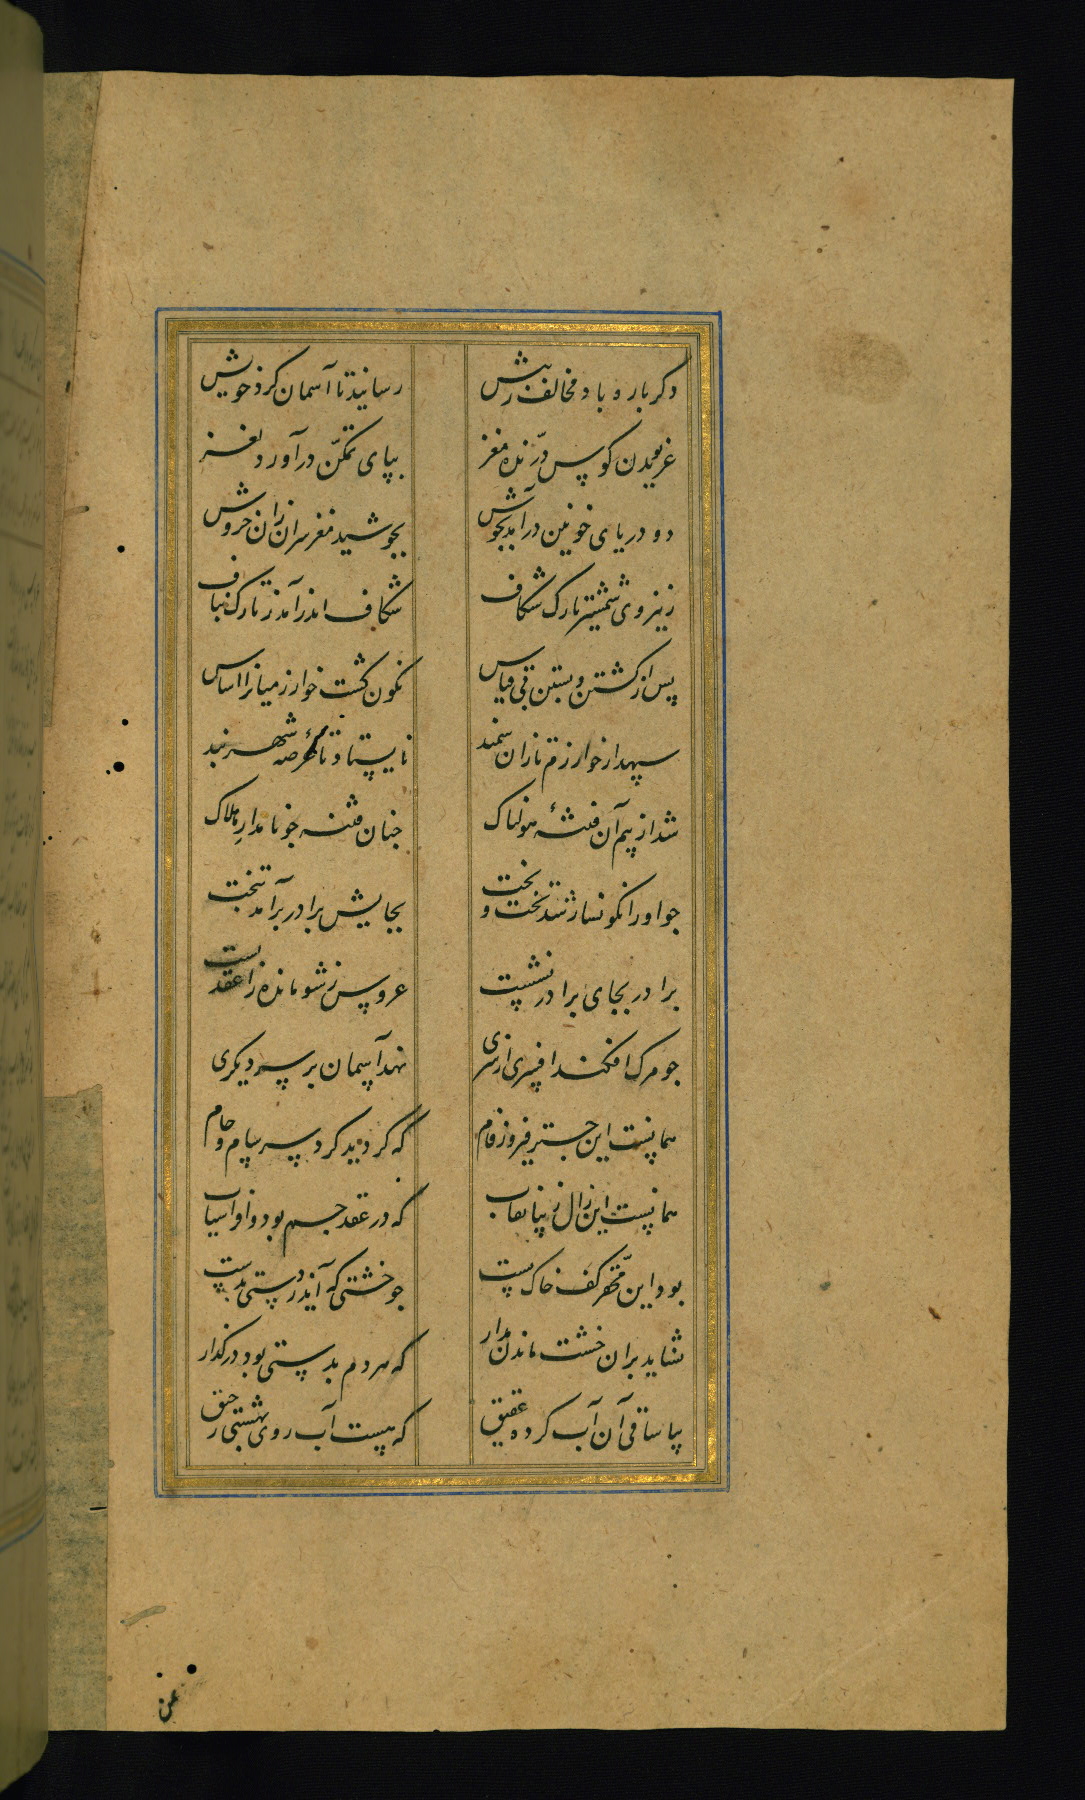 دگر باره باد مخالف زپیش رسانید تا آسمان گرد خویش
غریویدن کوس درّنده مغز بپای تمکّن درآورد لغز
دو دریای خونین درآمد بجوش بجوشید مغز سران زان خروش
ز نیروی شمشیر تارک شکاف شکاف اندر آمد ز تارک بناف
پس از کشتن و بستن بی قیاس نگون گشت خوارزمیانرا اساس
سپهدار خوارزم تازان سمند نایستاد تا عرصه شهر بند
شد از بیم آن فتنهٔ هولناک جنان فتنه جو نامدار هلاک
جو او را نگونسار شد تخت و بخت بجایش برادر برآمد بتخت
برادر بجای برادر نشست عروس ز شو مانده را عقد بست
جو مرک افکند افسری از سری نهد آسمان بر سر دیگری
همانست این جتر فیروزفام که گردید گرد سر سام و حام
همانست این زال زیبا نقاب که در عقد جم بود و افراسیاب
بود این کف خاک پست جو خشتی که آید ز دستی بدست
نشاید بران خشت ماندن مدار که هردم بدستی بود در گذار
بیا ساقی آن آب کرده عقیق که هست آب روی بهشتی رحیق